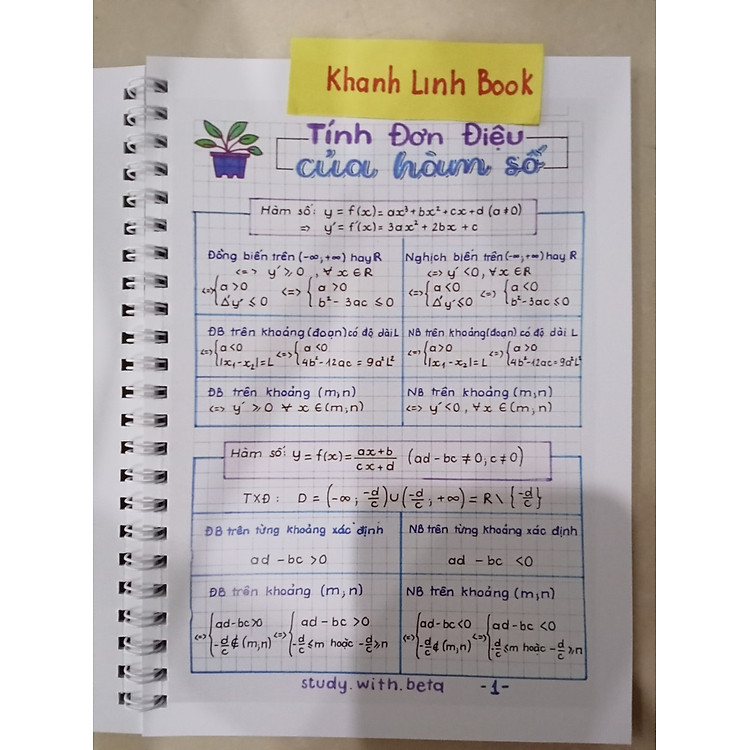 Khanh Linh Book
Tính Đơn Điệu
của hàm số
Hàm số: y = f(x) = ax³+bx²+cx+d (a≠0)
⇒ y' = f'(x) = 3ax²+2bx+c
Đồng biến trên (-∞,+∞) hay R
<=> y' ≥ 0, ∀x ∈ R
<=> { a > 0 <=> { a > 0
Δ'y' ≤ 0 b² - 3ac ≤ 0
Nghịch biến trên (-∞,+∞) hay R
<=> y' < 0, ∀x ∈ R
<=> { a < 0 <=> { a < 0
Δ'y' ≤ 0 b² - 3ac ≤ 0
ĐB trên khoảng (đoạn) có độ dài L
<=> { a < 0 <=> { a < 0
|x₁-x₂| = L 4b²-12ac = 9a²L²
NB trên khoảng (đoạn) có độ dài L
<=> { a > 0 <=> { a > 0
|x₁-x₂| = L 4b²-12ac = 9a²L²
ĐB trên khoảng (m;n)
<=> y' ≥ 0 ∀ x ∈ (m;n)
NB trên khoảng (m;n)
<=> y' < 0, ∀ x ∈ (m;n)
Hàm số: y = f(x) = ax+b/cx+d (ad-bc ≠ 0; c ≠ 0)
TXĐ: D = (-∞; -d/c) ∪ (-d/c; +∞) = R \ {-d/c}
ĐB trên từng khoảng xác định
ad - bc > 0
NB trên từng khoảng xác định
ad - bc < 0
ĐB trên khoảng (m;n)
<=> { ad-bc>0 <=> { ad - bc > 0
-d/c ∉ (m;n) -d/c ≤ m hoặc -d/c ≥ n
NB trên khoảng (m;n)
<=> { ad-bc<0 <=> { ad - bc < 0
-d/c ∉ (m,n) -d/c ≤ m hoặc -d/c ≥ n
study.with.beta -1-